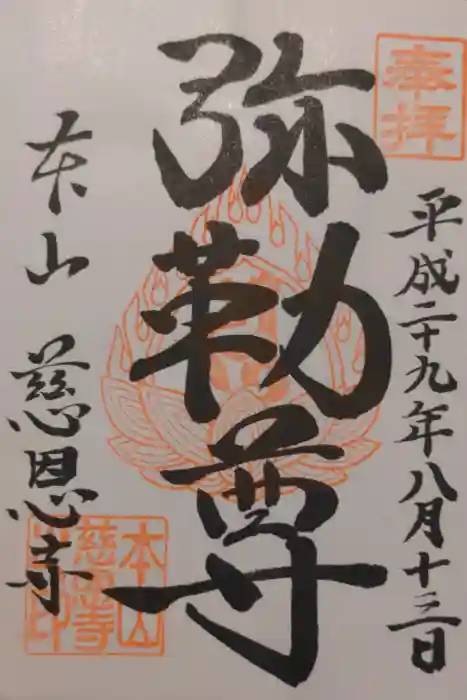 奉拝
平成二十九年八月十三日
弥勒尊
本山 慈恩寺
本山
慈恩寺